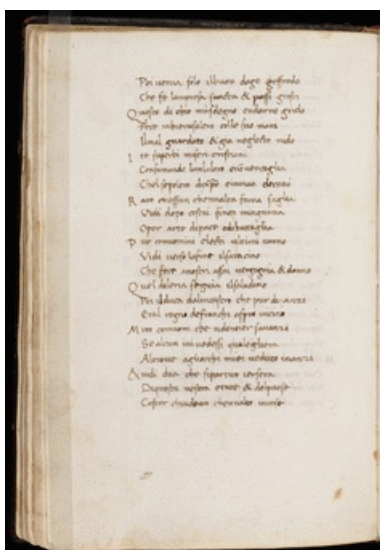 Poi uenia solo ilbuon duge goffrido
Che fe limpresa sancta & passi giusti
Questo di chio misdegno endarno grido
Fece inhierusalem colle sue mani
Ilmal guardato & gia neglecto nido
I te superbi miseri cristiani
Consumando lunlaltro enonuicaglia
Chelsepolcro dixpo einman decani
R aro onessun chennalta fama saglia
Vidi dopo costui sinon minganna
Oper arte dipace odibattaglia
P ur comuomini electi ultimi uanno
Vidi uerso lafine ilsaracino
Che fece anostri assai uergogna & danno
Q uel diloria seguia ilsaladino
Poi ilduca dalencastro che pur dianzi
Eral regno defranchi aspro uicino
M iro comuom che uolentier sauanzi
Se alcun iui uedessi qualegliera
Altroue agliocchi miei ueduto inanzi
E uidi duo che sipartir iersera
Diquesta nostra etate & delpaese
Costor chiudean